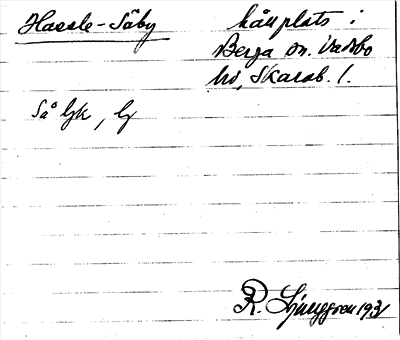 Hassle-Säby hållplats i
Berga sn. Vadsbo
hd, Skarab. l.
Så ljk, lj
R. Ljunggren 1931